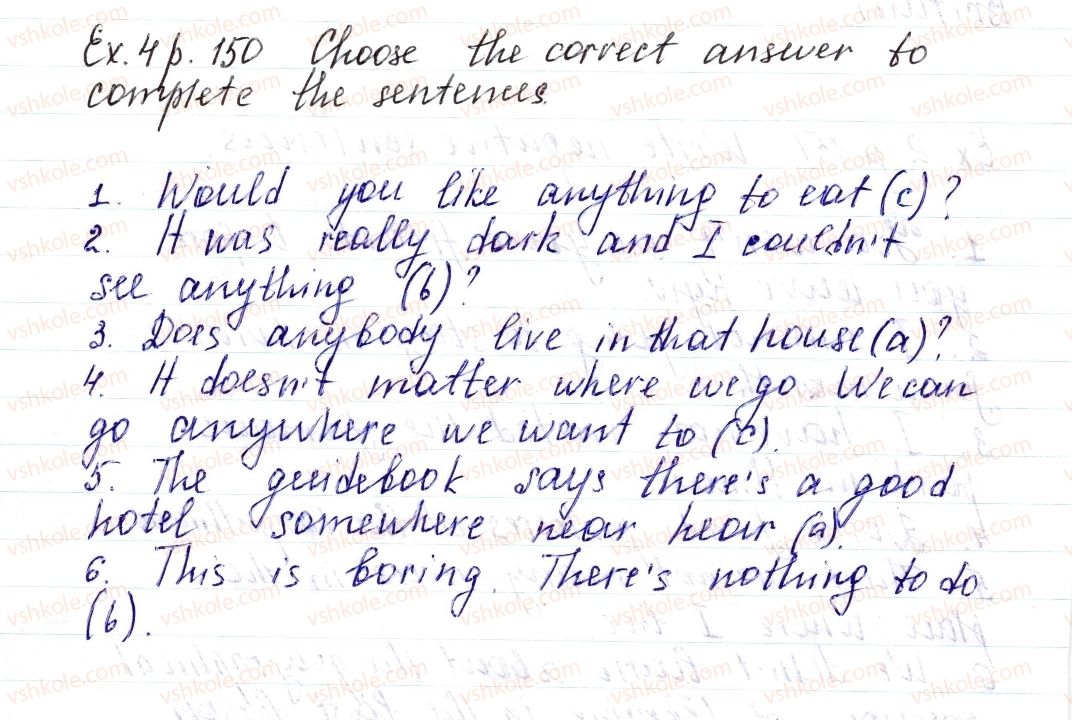 Ex. 4 p. 150 Choose the correct answer to
complete the sentences.
1. Would you like anything to eat (c)?
2. It was really dark and I couldn't
see anything (b)?
3. Does anybody live in that house (a)?
4. It doesn't matter where we go. We can
go anywhere we want to (c).
5. The guidebook says there's a good
hotel somewhere near hear (a).
6. This is boring. There's nothing to do
(b).
vshkole.com